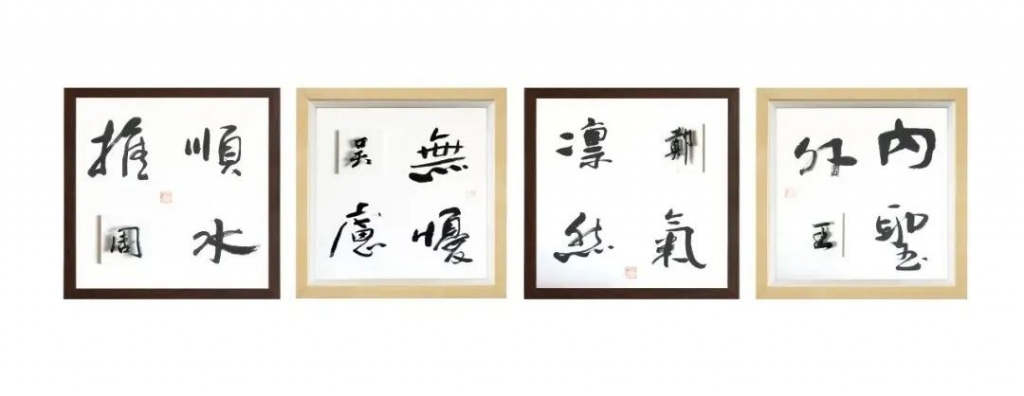 順水
推周
無憂
吳慮
鄭氣
凛然
內聖
外王